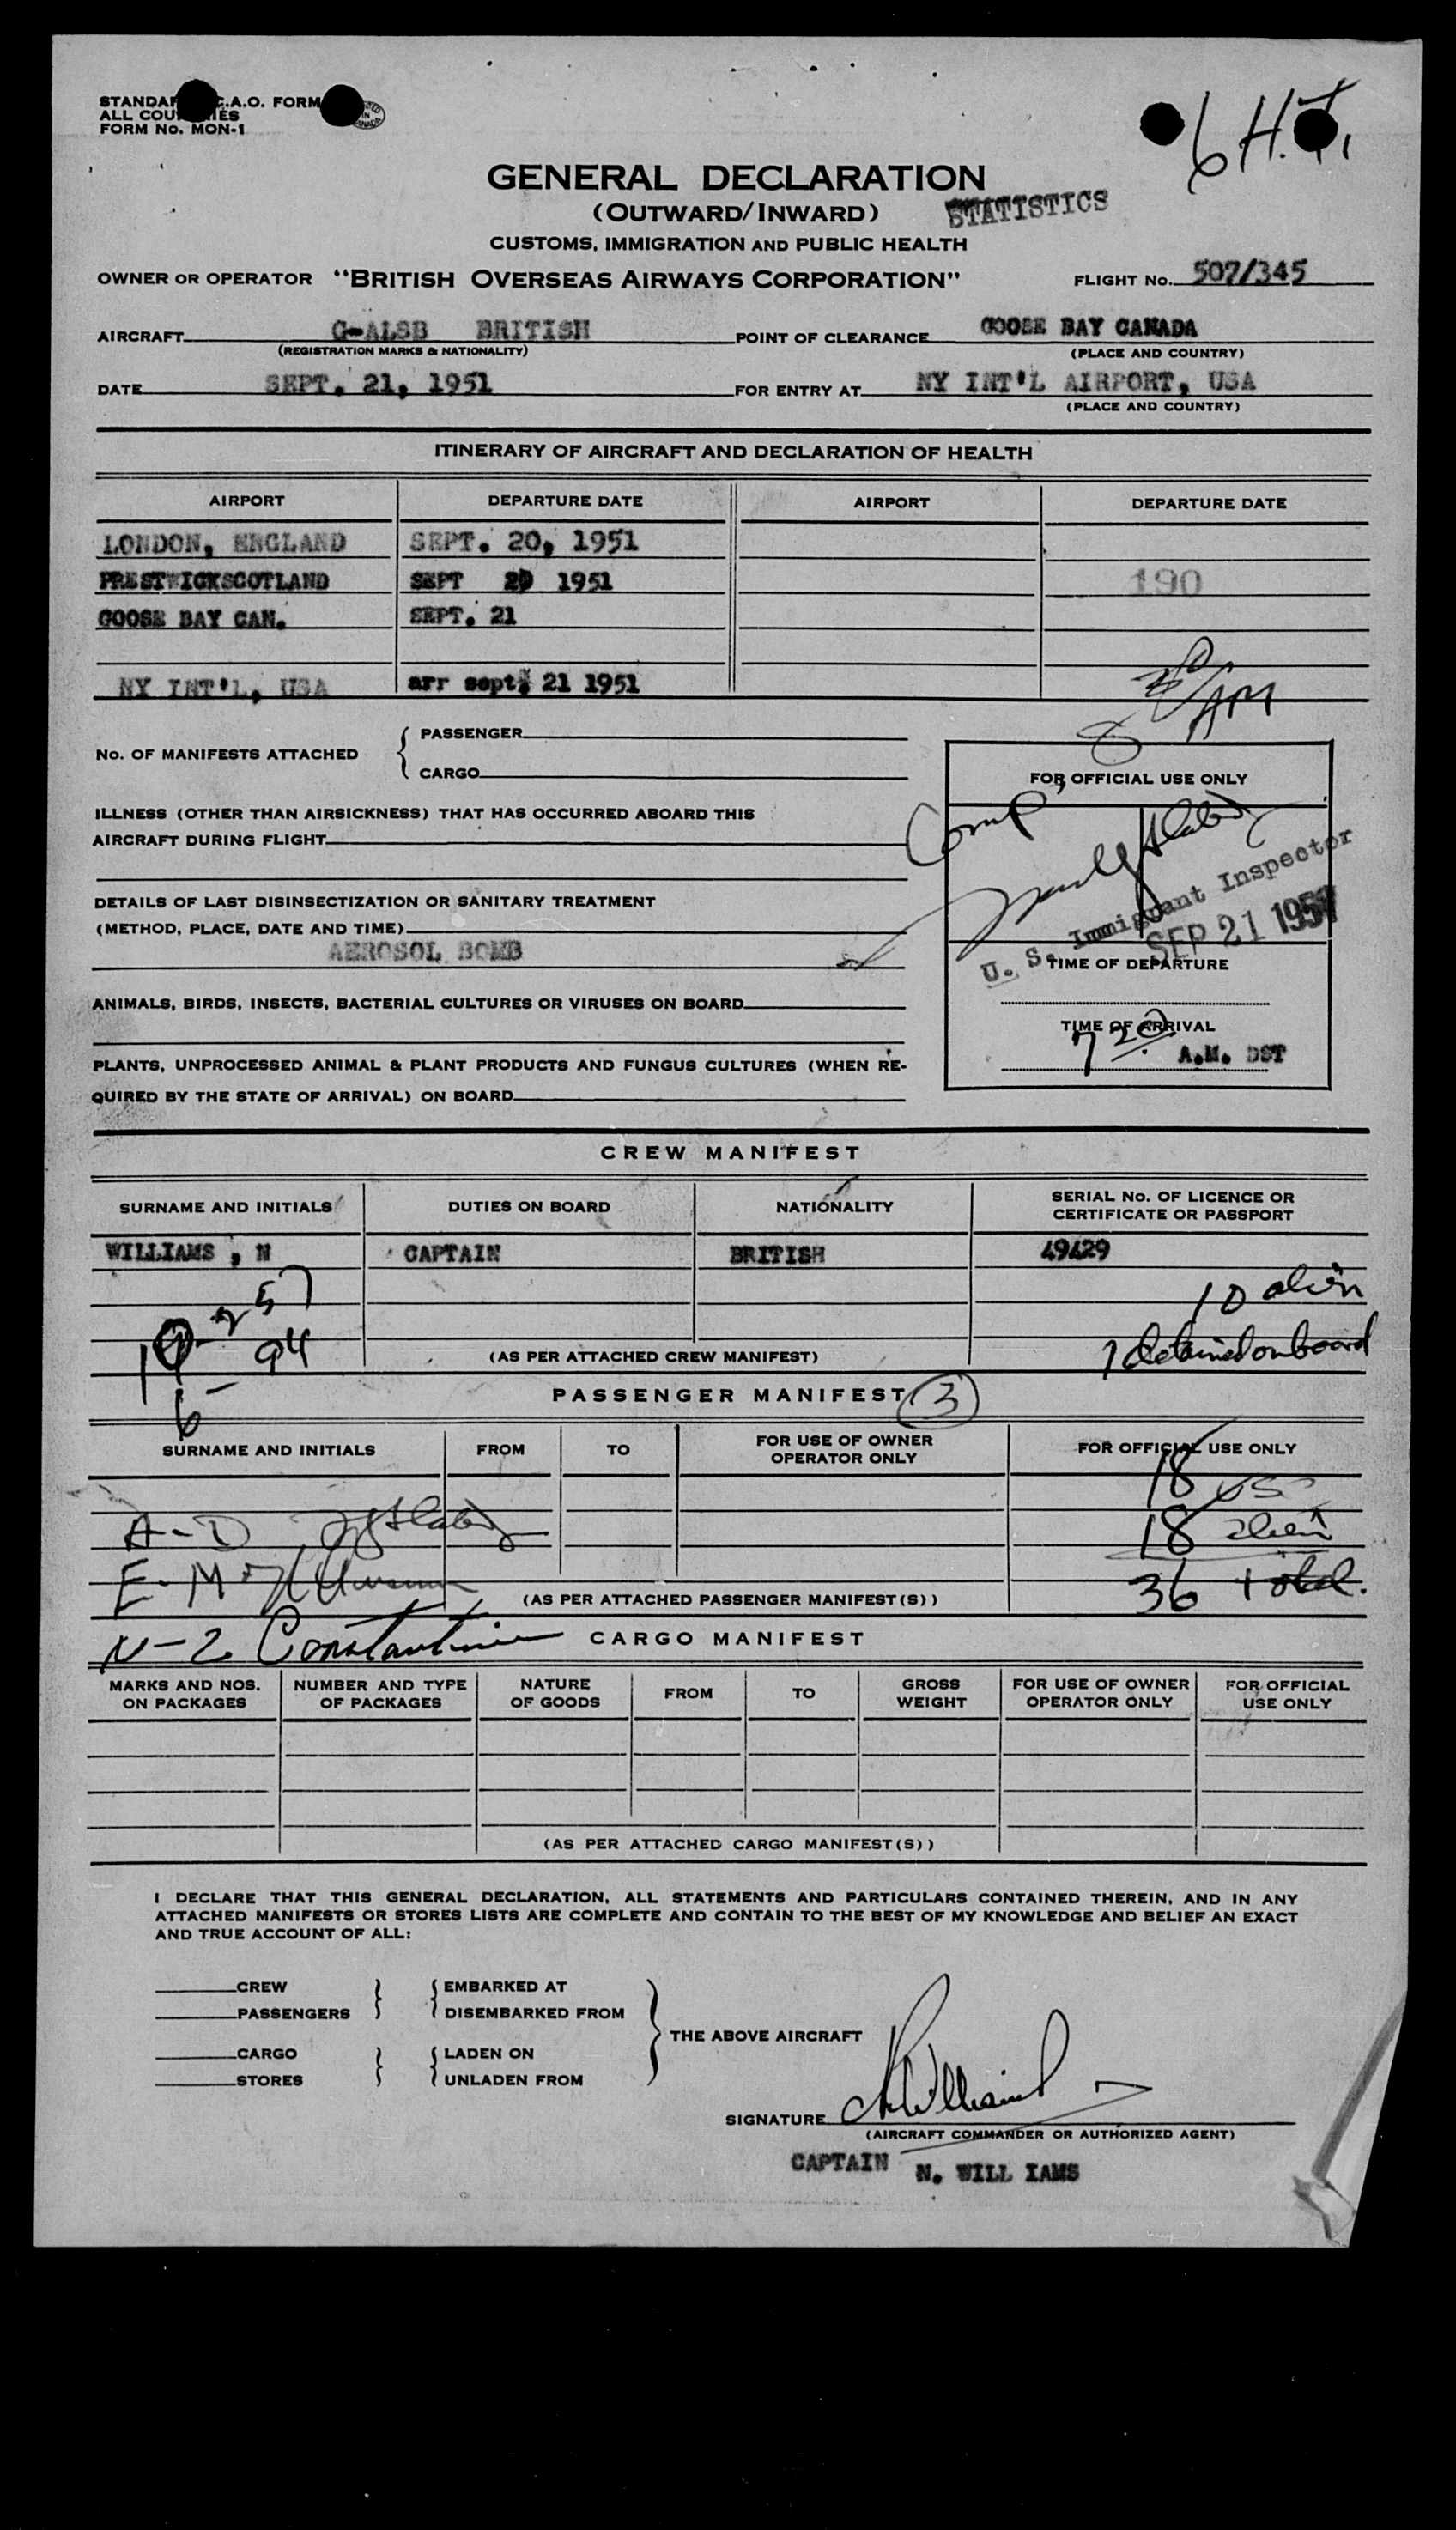 STANDAR C.A.O. FORM
ALL COU IES
FORM No. MON-1
PRINTED IN CANADA
6 H.T.
GENERAL DECLARATION
(OUTWARD/INWARD)
STATISTICS
CUSTOMS, IMMIGRATION AND PUBLIC HEALTH
OWNER OR OPERATOR "BRITISH OVERSEAS AIRWAYS CORPORATION" FLIGHT No. 507/345
AIRCRAFT G-ALSB BRITISH POINT OF CLEARANCE GOOSE BAY CANADA
(REGISTRATION MARKS & NATIONALITY) (PLACE AND COUNTRY)
DATE SEPT. 21, 1951 FOR ENTRY AT NY INT'L AIRPORT, USA
(PLACE AND COUNTRY)
ITINERARY OF AIRCRAFT AND DECLARATION OF HEALTH
AIRPORT DEPARTURE DATE AIRPORT DEPARTURE DATE
LONDON, ENGLAND SEPT. 20, 1951
PRESTWICKSCOTLAND SEPT 20 1951 190
GOOSE BAY CAN. SEPT. 21
NY INT'L, USA arr sept. 21 1951
AM
No. OF MANIFESTS ATTACHED { PASSENGER
CARGO
FOR OFFICIAL USE ONLY
Comp
ILLNESS (OTHER THAN AIRSICKNESS) THAT HAS OCCURRED ABOARD THIS
AIRCRAFT DURING FLIGHT
U. S. Immigrant Inspector
SEP 21 1951
DETAILS OF LAST DISINSECTIZATION OR SANITARY TREATMENT
(METHOD, PLACE, DATE AND TIME)
AEROSOL BOMB
TIME OF DEPARTURE
ANIMALS, BIRDS, INSECTS, BACTERIAL CULTURES OR VIRUSES ON BOARD
TIME OF ARRIVAL
7 20 A.M. DST
PLANTS, UNPROCESSED ANIMAL & PLANT PRODUCTS AND FUNGUS CULTURES (WHEN RE-
QUIRED BY THE STATE OF ARRIVAL) ON BOARD
CREW MANIFEST
SURNAME AND INITIALS DUTIES ON BOARD NATIONALITY SERIAL No. OF LICENCE OR
CERTIFICATE OR PASSPORT
WILLIAMS , N CAPTAIN BRITISH 49429
10 alien
94 (AS PER ATTACHED CREW MANIFEST) 1 detained on board
PASSENGER MANIFEST 3
6
SURNAME AND INITIALS FROM TO FOR USE OF OWNER
OPERATOR ONLY FOR OFFICIAL USE ONLY
18 USC
A-D 18 alien
E-M (AS PER ATTACHED PASSENGER MANIFEST(S)) 36 total.
N-Z Constantine CARGO MANIFEST
MARKS AND NOS.
ON PACKAGES NUMBER AND TYPE
OF PACKAGES NATURE
OF GOODS FROM TO GROSS
WEIGHT FOR USE OF OWNER
OPERATOR ONLY FOR OFFICIAL
USE ONLY
(AS PER ATTACHED CARGO MANIFEST(S))
I DECLARE THAT THIS GENERAL DECLARATION, ALL STATEMENTS AND PARTICULARS CONTAINED THEREIN, AND IN ANY
ATTACHED MANIFESTS OR STORES LISTS ARE COMPLETE AND CONTAIN TO THE BEST OF MY KNOWLEDGE AND BELIEF AN EXACT
AND TRUE ACCOUNT OF ALL:
CREW EMBARKED AT
PASSENGERS DISEMBARKED FROM
THE ABOVE AIRCRAFT
CARGO LADEN ON
STORES UNLADEN FROM
SIGNATURE N Williams
(AIRCRAFT COMMANDER OR AUTHORIZED AGENT)
CAPTAIN N. WILL IAMS